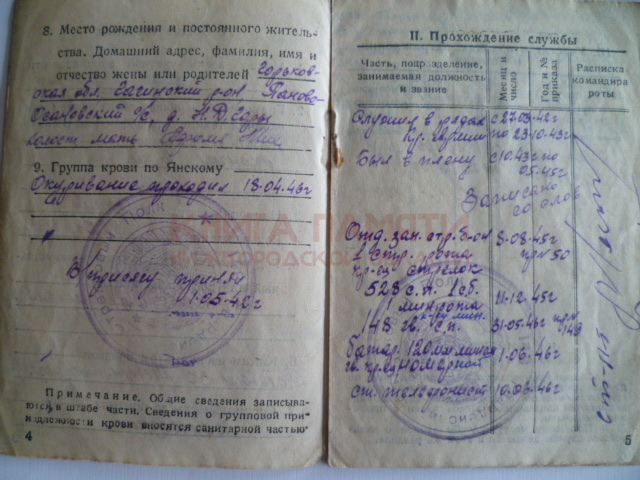 8. Место рождения и постоянного житель-
ства. Домашний адрес, фамилия, имя и
отчество жены или родителей Горьков-
ская обл. Гагинский р-он Паново-
Осановский с/с, д.
холост мать
9. Группа крови по Янскому
Окуривание проходил 18.04.46г
КНИГА ПАМЯТИ
НИЖЕГОРОДСКОЙ
В/присягу принял
1.05.42г
Примечание. Общие сведения записыва-
ются в штабе части. Сведения о групповой при-
надлежности крови вносятся санитарной частью
4
II. Прохождение службы
Часть, подразделение,
занимаемая должность
и звание
Месяц и
число
Год и №
приказа
Расписка
командира
роты
Служил в рядах с 27.03.42г
Кр. армии по 23.10.43г
Был в плену с 10.43г по
05.45г
Записано
со слов
Отд. зап. стр. б-он 8.08.45г
2 стр. рота пр № 50
кр-ец стрелок
528 с.п. 1 сб.
минрота 11.12.45г
148 гв. с.п. 31.05.46г
батар. 120мм мин 1.06.46г
гв. кр-ец номерной
ст. телефонист 10.06.46г
5